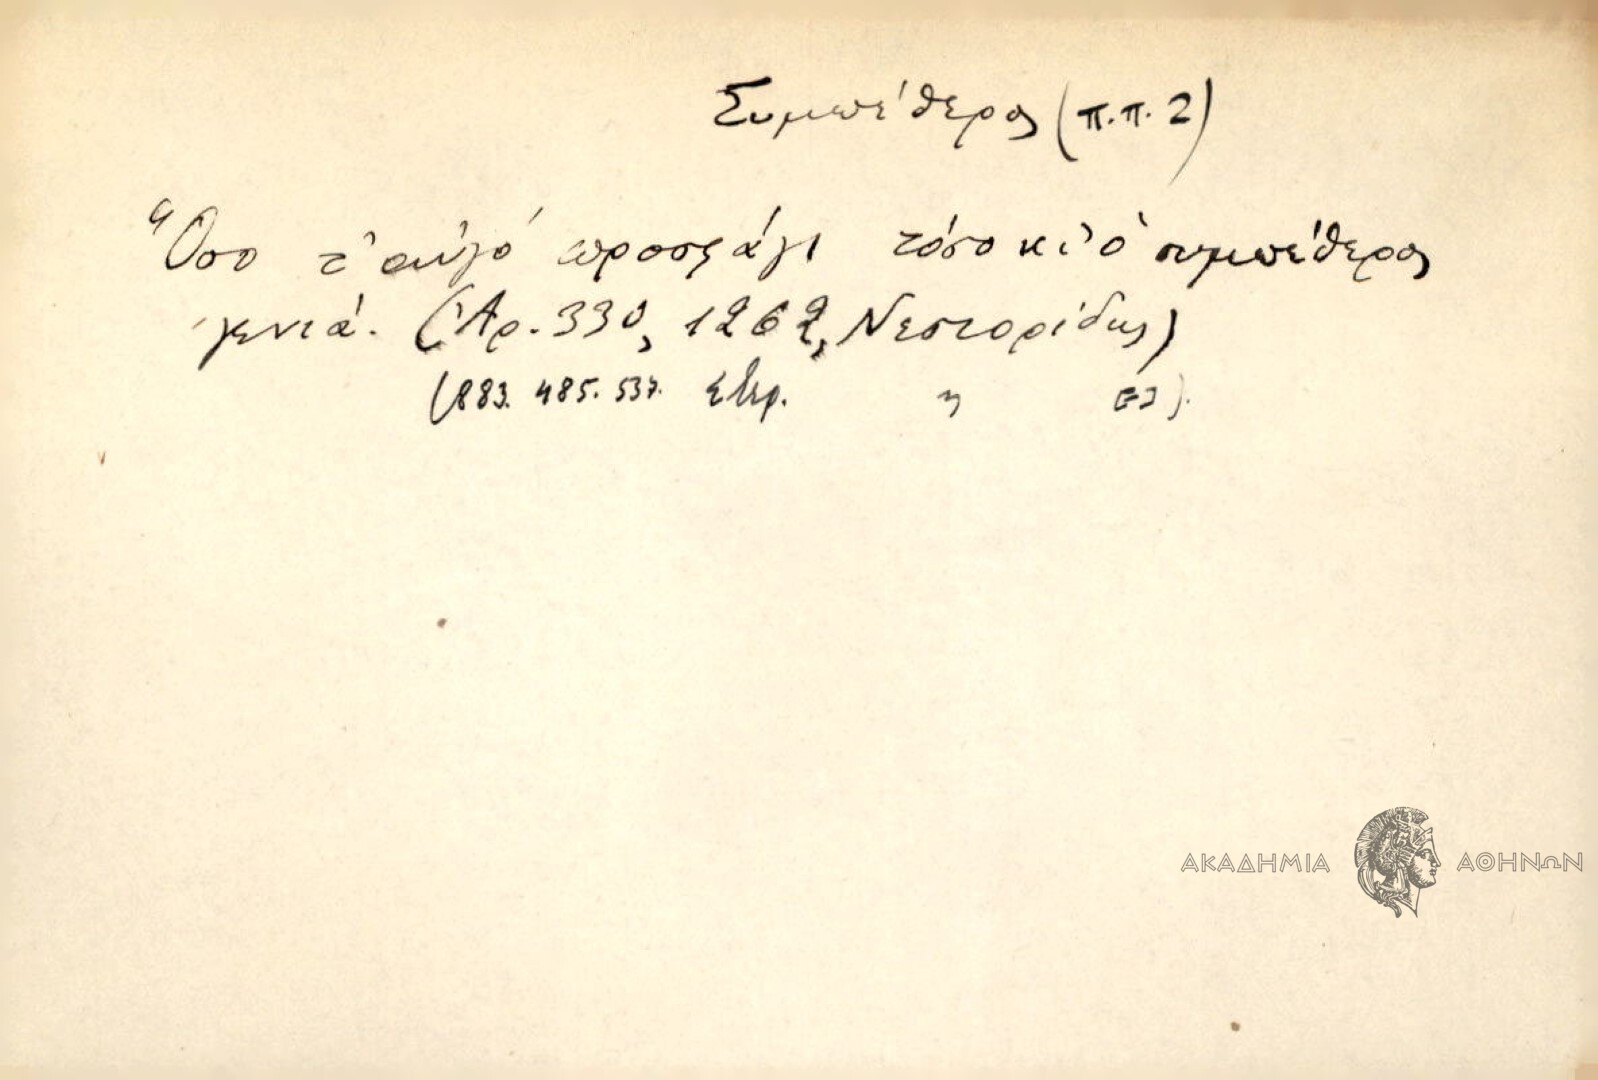 Συμπέθερος (π.π. 2)
Ὅσο τ' αὐγό προσφάγι τόσο κι' ὁ συμπέθερος
γενιά. (Ἀρ. 330, 1262, Νεστορίδης)
(883. 485. 537. Στερ. 〃 ).
ΑΚΑΔΗΜΙΑ ΑΘΗΝΩΝ